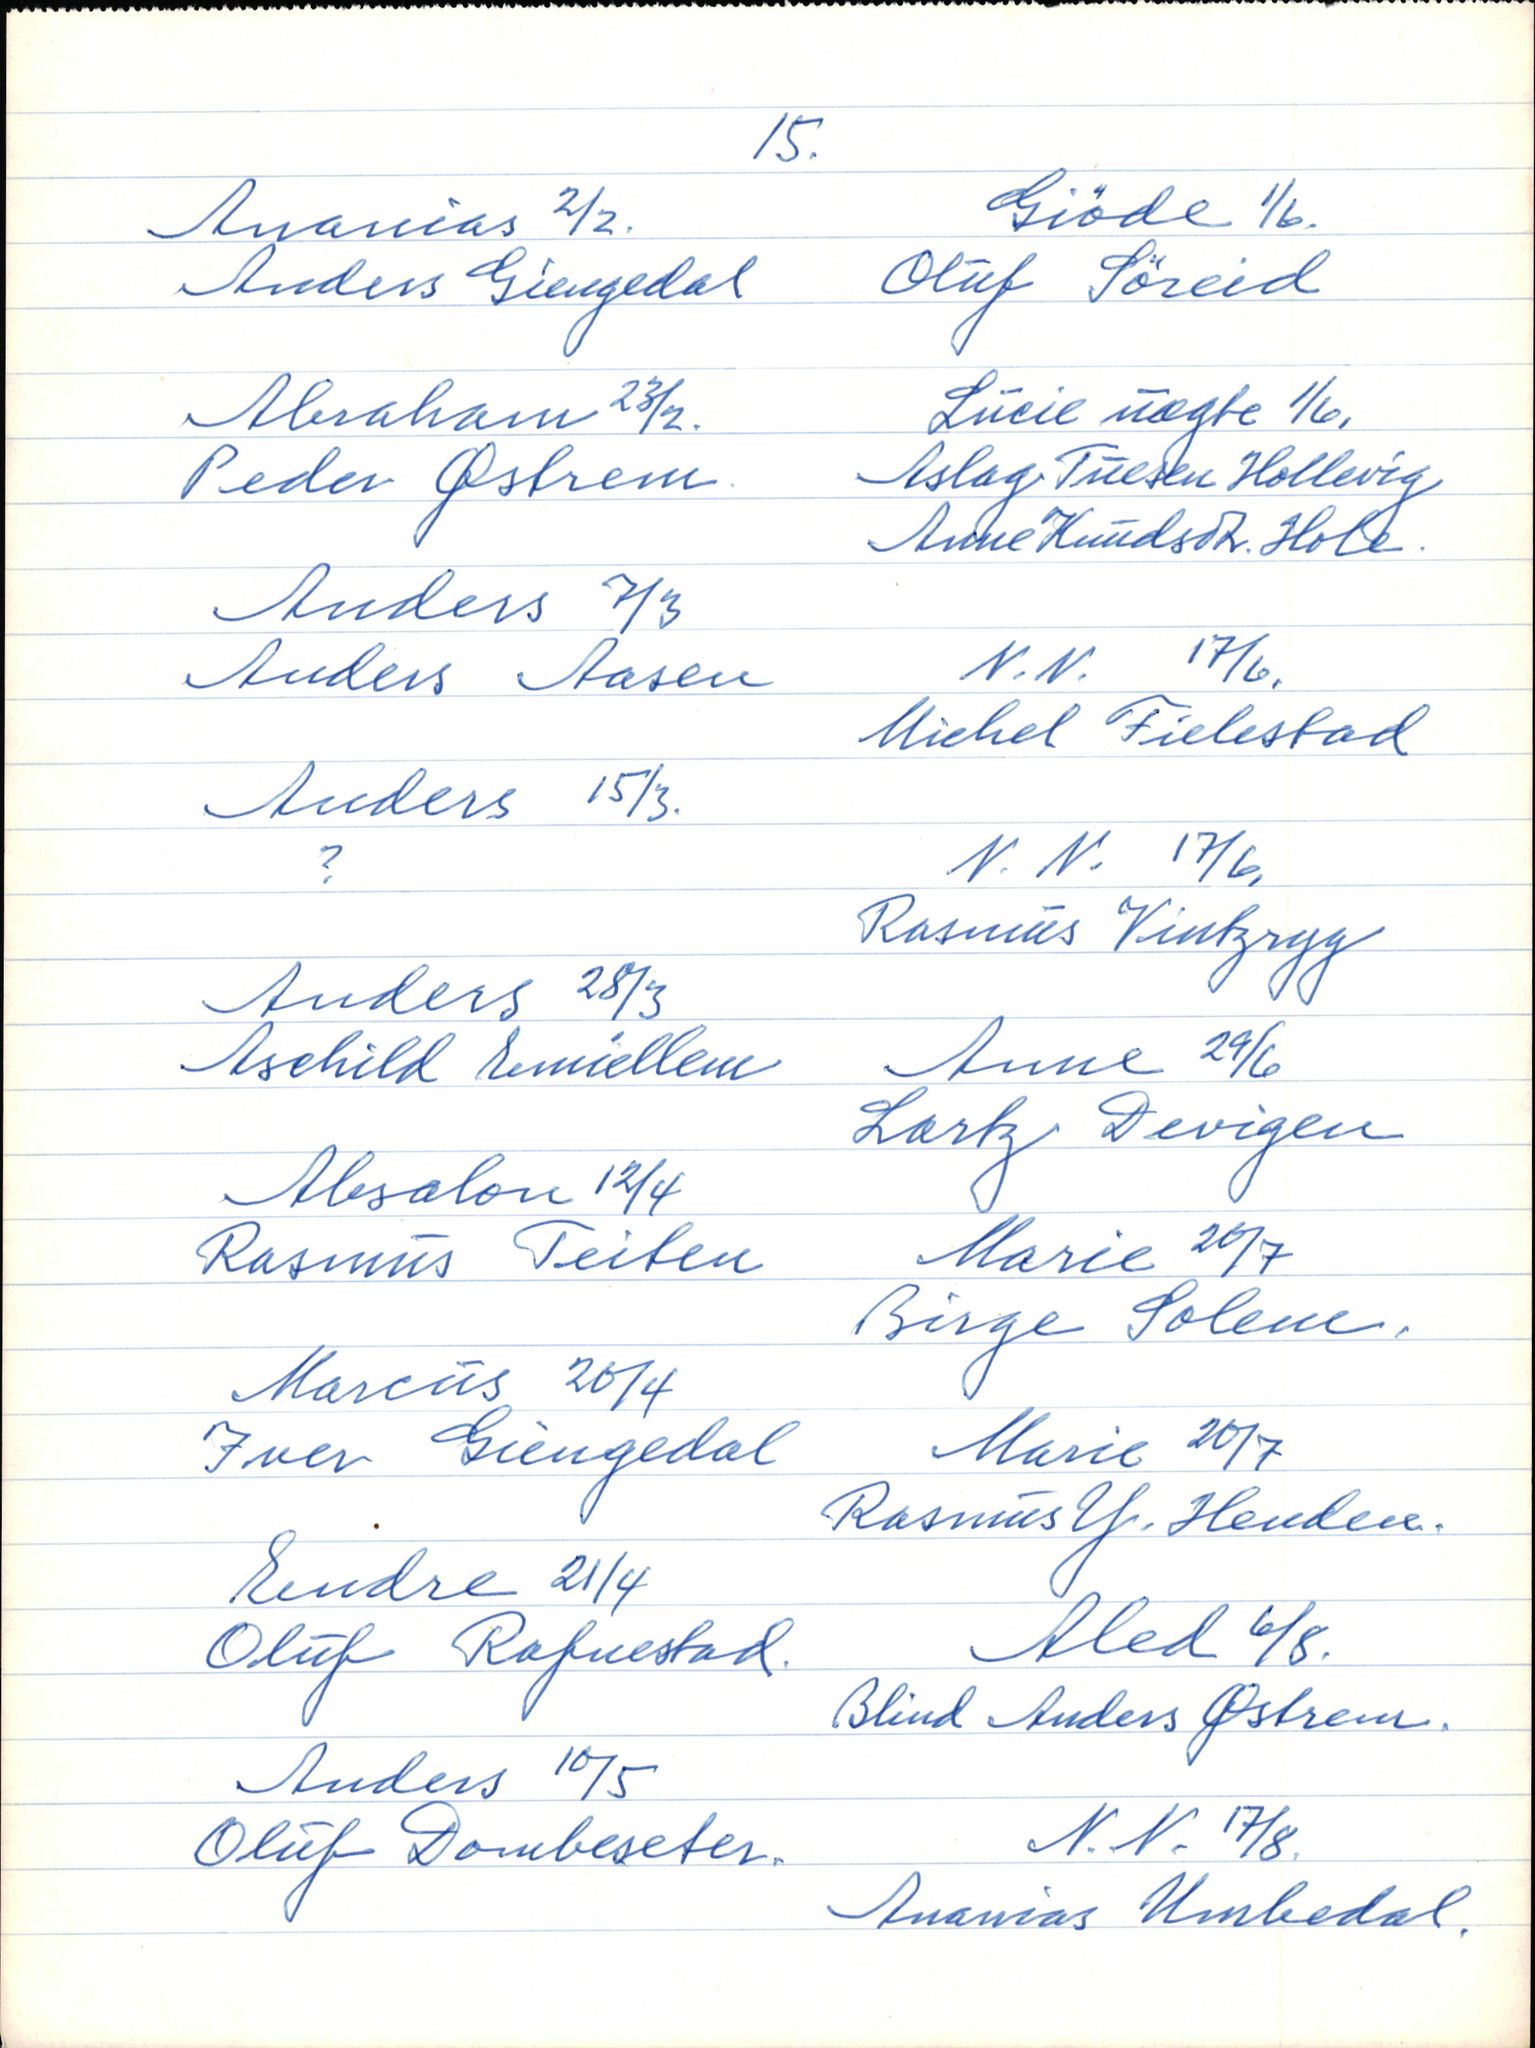 15.
Ananias 2/2.
Anders Giengedal
Abraham 23/2.
Peder Østrem.
Anders 7/3
Anders Aasen
Anders 15/3.
?
Anders 28/3
Aschild Emiellem
Absalon 12/4
Rasmus Teiten
Marcus 20/4
Iver Giengedal
Endre 21/4
Oluf Rafnestad.
Anders 10/5
Oluf Dombeseter.
Giöde 1/6.
Oluf Söreid
Lucie uægte 1/6.
Aslag Tuesen Hollevig
Anne Knudsdtr. Hole.
N.N. 17/6.
Michel Fielestad
N.N. 17/6.
Rasmus Vintzryg
Anne 29/6
Lartz Devigen
Marie 20/7
Birge Solem.
Marie 20/7
Rasmus Y. Henden.
Aled 6/8.
Blind Anders Østrem.
N.N. 17/8.
Ananias Umbedal.